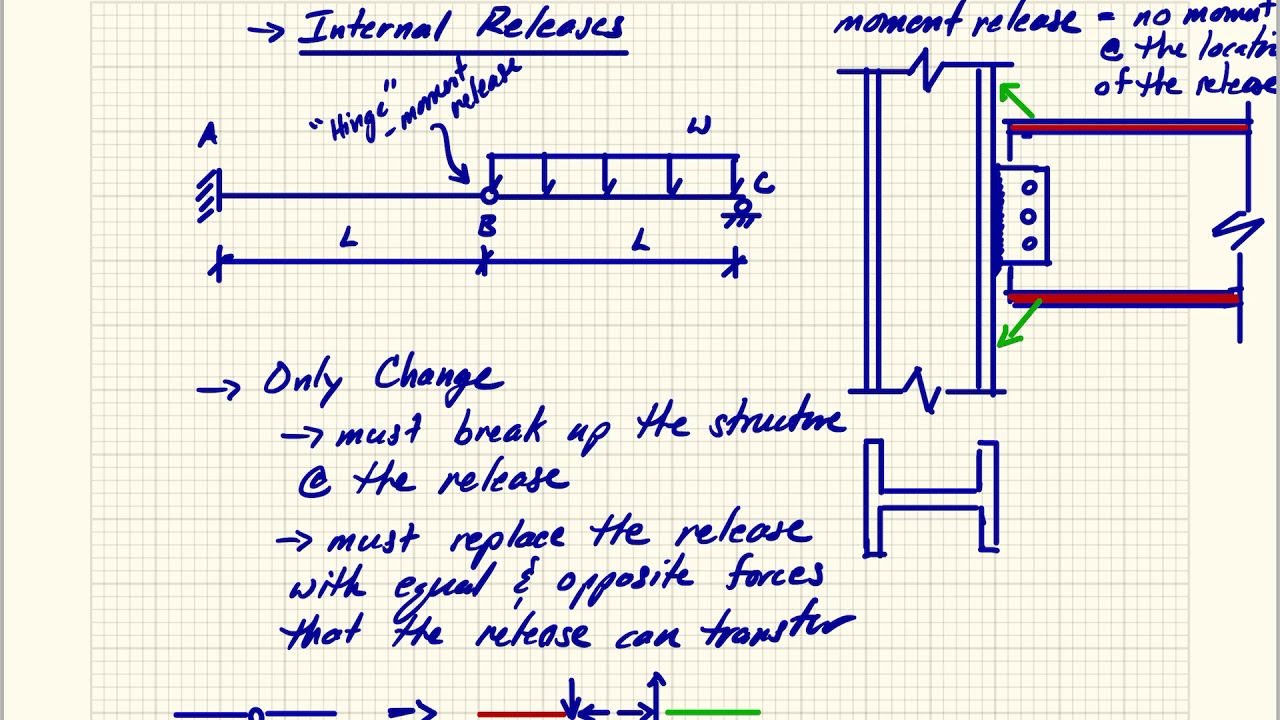 → Internal Releases
"Hinge" - moment
release
A
w
C
B
L
L
moment release = no moment
@ the locati
of the release
→ Only Change
→ must break up the structure
@ the release
→ must replace the release
with equal & opposite forces
that the release can transfer